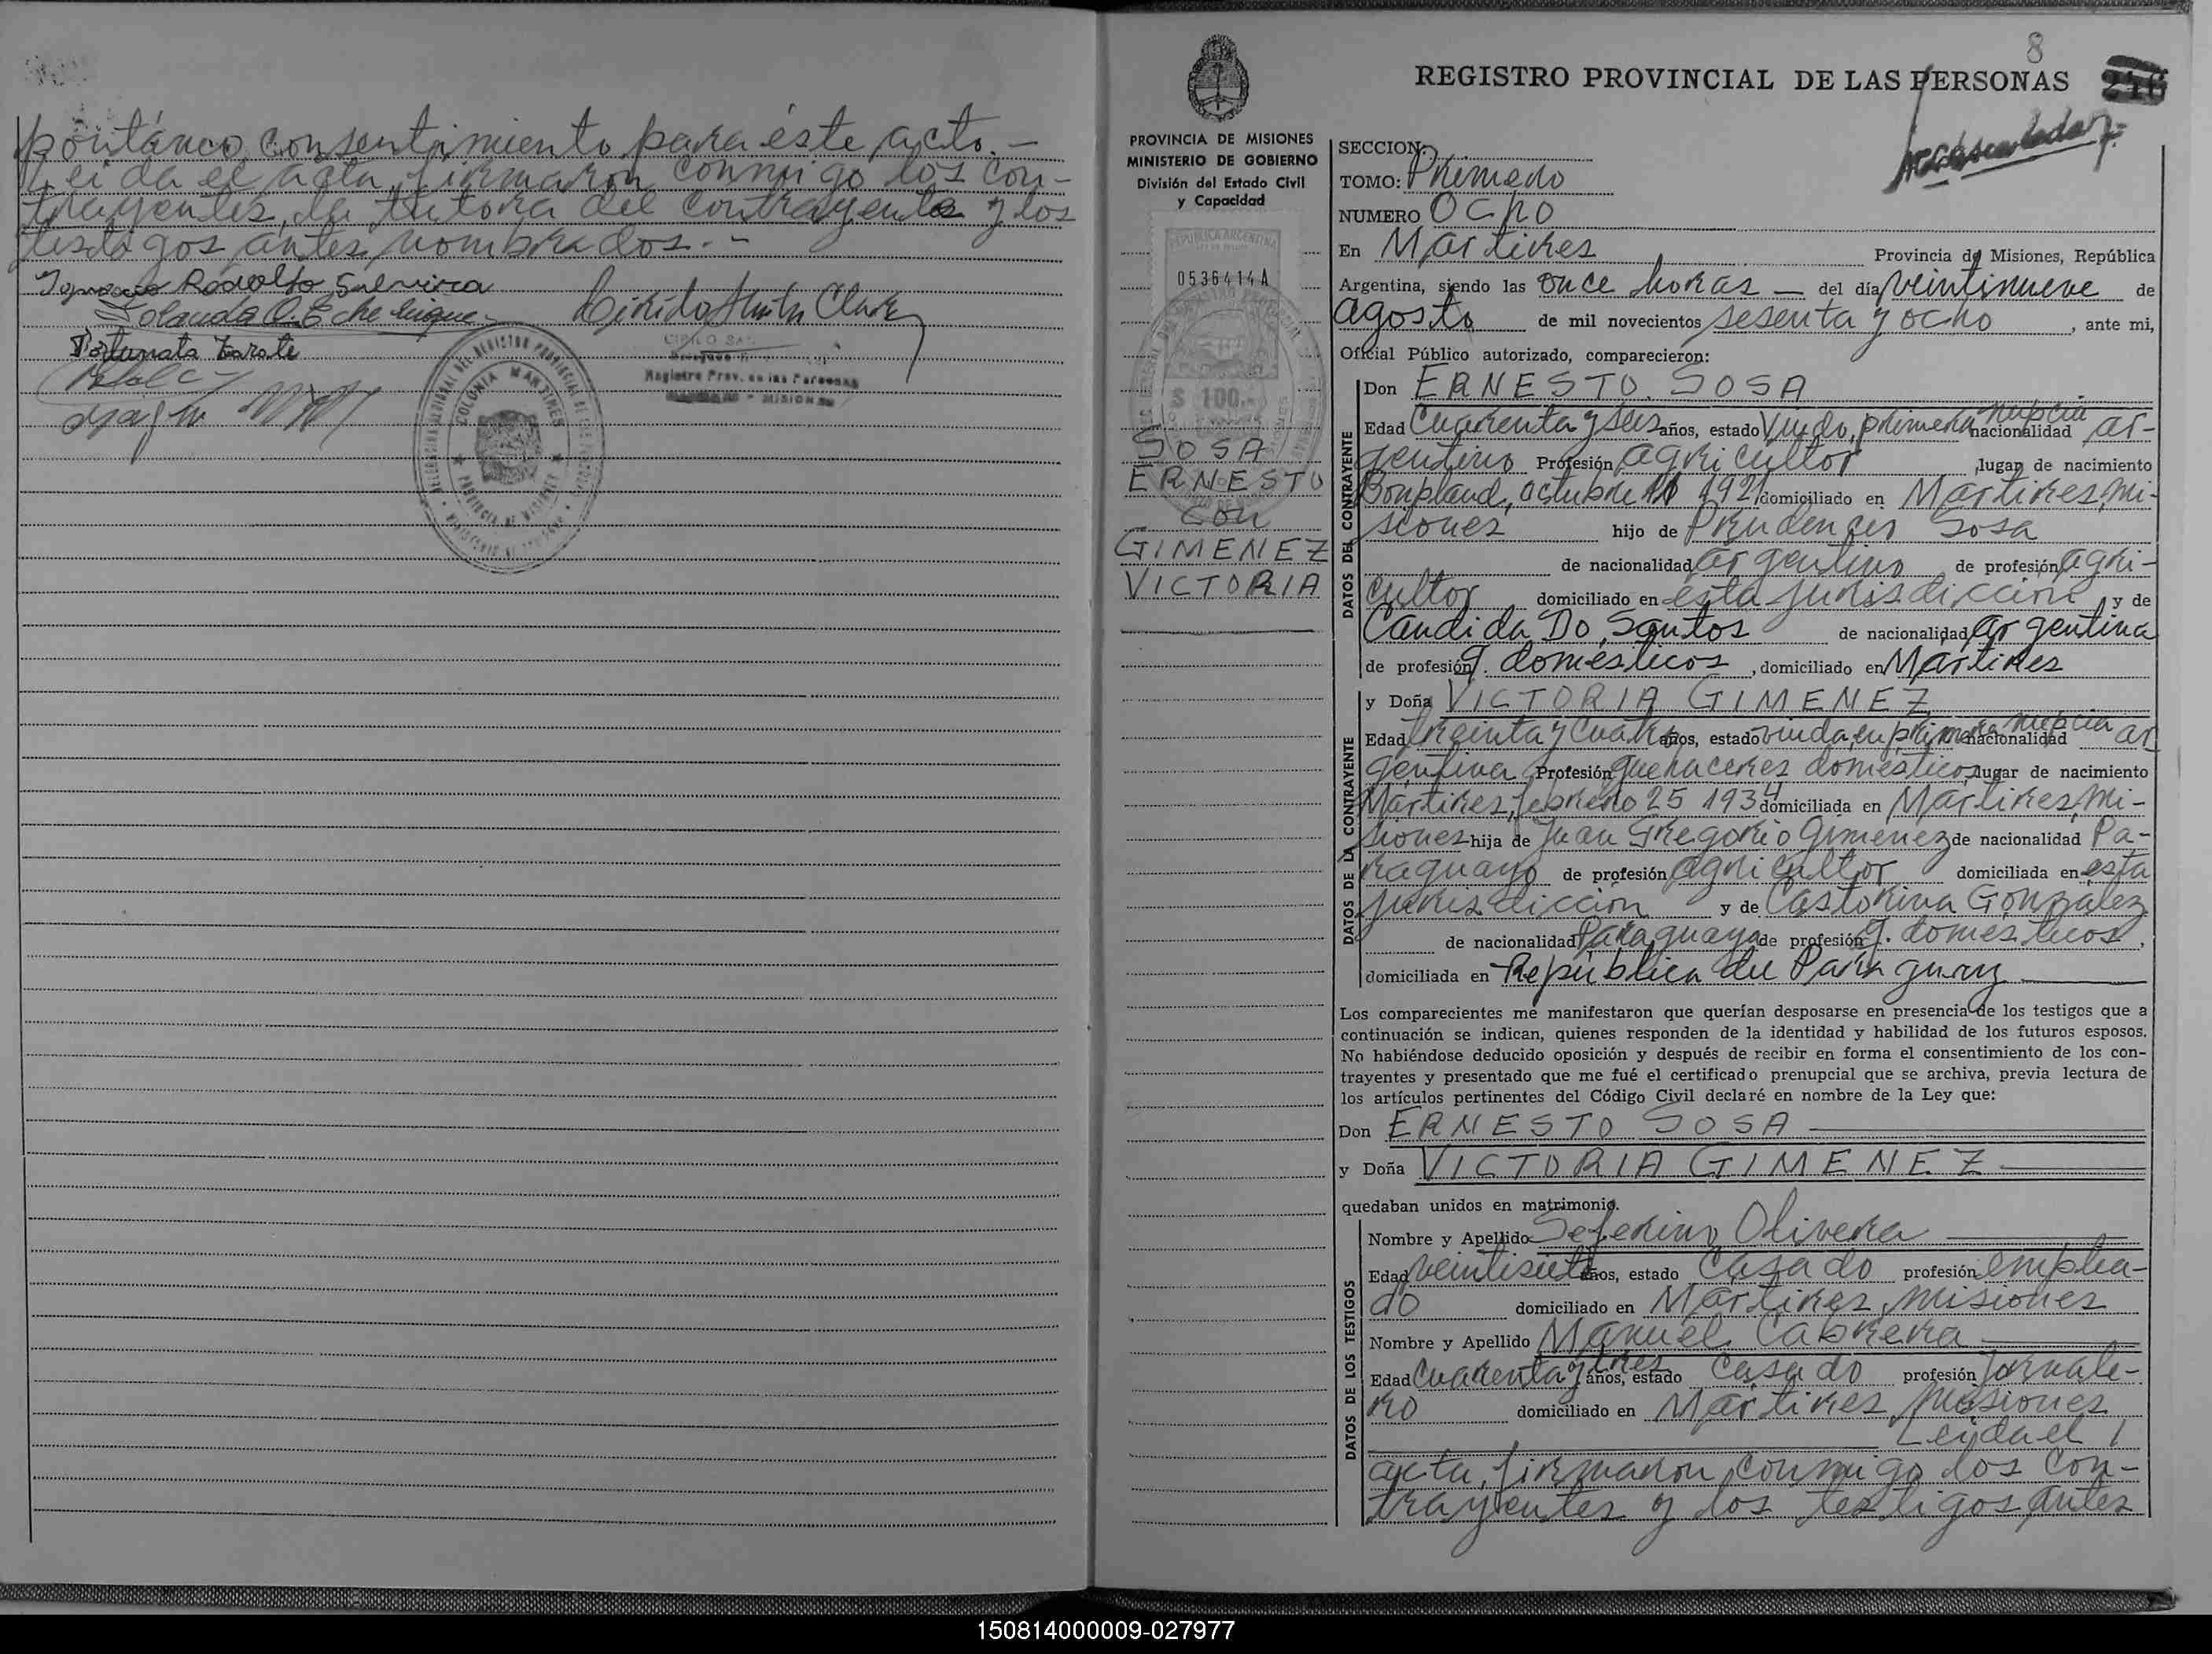 pontáneo consentimiento para éste acto.-
Leida el acta, firmaron conmigo los con-
trayentes, la tutora del contrayente y los
testigos antes nombrados.-
Rodolfo
Yolanda O. Echeñique
Fortunata Zarate
COLONIA MARTIRES
PROVINCIA DE MISIONES
Registro Prov. de las Personas
MISIONES
8
REGISTRO PROVINCIAL DE LAS PERSONAS
PROVINCIA DE MISIONES
MINISTERIO DE GOBIERNO
División del Estado Civil
y Capacidad
REPUBLICA ARGENTINA
0536414A
$ 100.-
SOSA
ERNESTO
con
GIMENEZ
VICTORIA
SECCION:
TOMO: Primero
NUMERO Ocho
En Martires Provincia de Misiones, República
Argentina, siendo las once horas — del día veintinueve de
agosto de mil novecientos sesenta y ocho, ante mi,
Oficial Público autorizado, comparecieron:
DATOS DEL CONTRAYENTE
Don ERNESTO SOSA
Edad Cuarenta y seis años, estado Viudo, primera nupcia nacionalidad ar-
gentino Profesión agricultor, lugar de nacimiento
Bonpland, octubre 1921 domiciliado en Martires, Mi-
siones hijo de Prudencio Sosa
de nacionalidad argentino de profesión agri-
cultor domiciliado en esta jurisdicción y de
Candida Do Santos de nacionalidad argentina
de profesión q. domésticos, domiciliado en Martires
DATOS DE LA CONTRAYENTE
y Doña VICTORIA GIMENEZ
Edad treinta y cuatro años, estado viuda, en primera nupcia nacionalidad ar
gentina Profesión quehaceres domésticos, lugar de nacimiento
Mártires, febrero 25 1934 domiciliada en Mártires, Mi-
siones hija de Juan Gregorio Gimenez de nacionalidad Pa-
raguayo de profesión agricultor domiciliada en esta
jurisdicción y de Castorina Gonzalez
de nacionalidad Paraguaya de profesión q. domésticos,
domiciliada en República del Paraguay
Los comparecientes me manifestaron que querían desposarse en presencia de los testigos que a
continuación se indican, quienes responden de la identidad y habilidad de los futuros esposos.
No habiéndose deducido oposición y después de recibir en forma el consentimiento de los con-
trayentes y presentado que me fué el certificado prenupcial que se archiva, previa lectura de
los artículos pertinentes del Código Civil declaré en nombre de la Ley que:
Don ERNESTO SOSA
y Doña VICTORIA GIMENEZ
quedaban unidos en matrimonio.
DATOS DE LOS TESTIGOS
Nombre y Apellido Seferino Olivera
Edad veintisiete años, estado Casado profesión emplea-
do domiciliado en Mártires, Misiones
Nombre y Apellido Manuel Cabrera
Edad Cuarenta y tres años, estado Casado profesión Jornale-
ro domiciliado en Mártires, Misiones
Leida el
acta, firmaron conmigo los con-
trayentes y los testigos antes
150814000009-027977